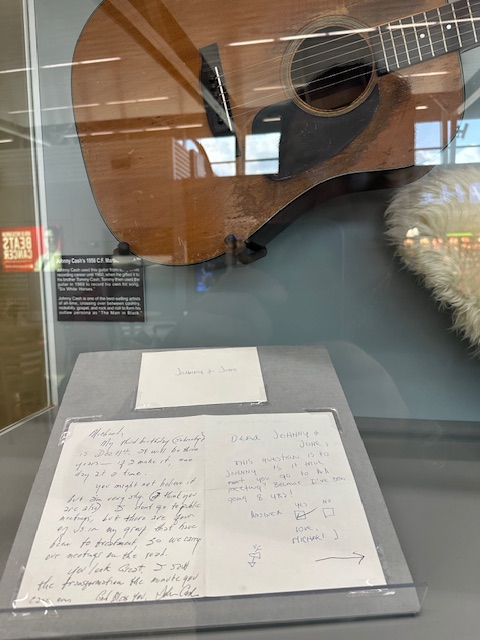 BEATS
CANCER
Johnny Cash's 1956 C.F. Martin
Johnny Cash used this guitar from
recording career until 1960, when he gifted it to
his brother Tommy Cash. Tommy then used the
guitar in 1969 to record his own hit song,
"Six White Horses."
Johnny Cash is one of the best-selling artists
of all-time, crossing over between country,
rockabilly, gospel, and rock and roll to form his
outlaw persona as "The Man in Black"
Johnny + June
Michael,
My third birthday (sobriety)
is Dec 11th. It will be three
years — if I make it, one
day at a time.
you might not believe it
but I'm very shy (I think you
are also) I don't go to public
meetings, but there are four
of us in my group that have
been to treatment, so we carry
our meetings on the road.
You look Great, I saw
the transformation the minute you
God Bless You, John Cash
Dear Johnny +
June,
This question is to
Johnny is it true
meet you go to AA
meetings? Because I've been
going 8 yrs!
Answer YES NO
Love,
Michael J